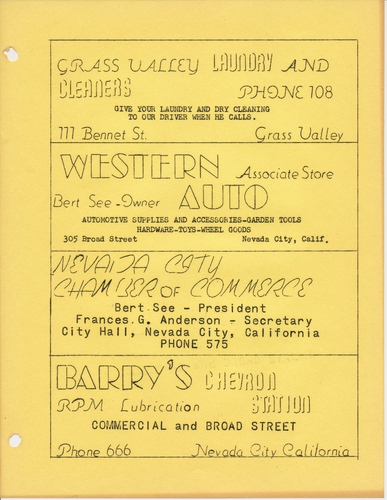 GRASS VALLEY LAUNDRY AND
CLEANERS PHONE 108
GIVE YOUR LAUNDRY AND DRY CLEANING
TO OUR DRIVER WHEN HE CALLS.
111 Bennet St. Grass Valley
WESTERN Associate Store
Bert See-Owner AUTO
AUTOMOTIVE SUPPLIES AND ACCESSORIES-GARDEN TOOLS
HARDWARE-TOYS-WHEEL GOODS
305 Broad Street Nevada City, Calif.
NEVADA CITY
CHAMBER OF COMMERCE
Bert See - President
Frances G. Anderson - Secretary
City Hall, Nevada City, California
PHONE 575
BARRY'S CHEVRON
RPM Lubrication STATION
COMMERCIAL and BROAD STREET
Phone 666 Nevada City California